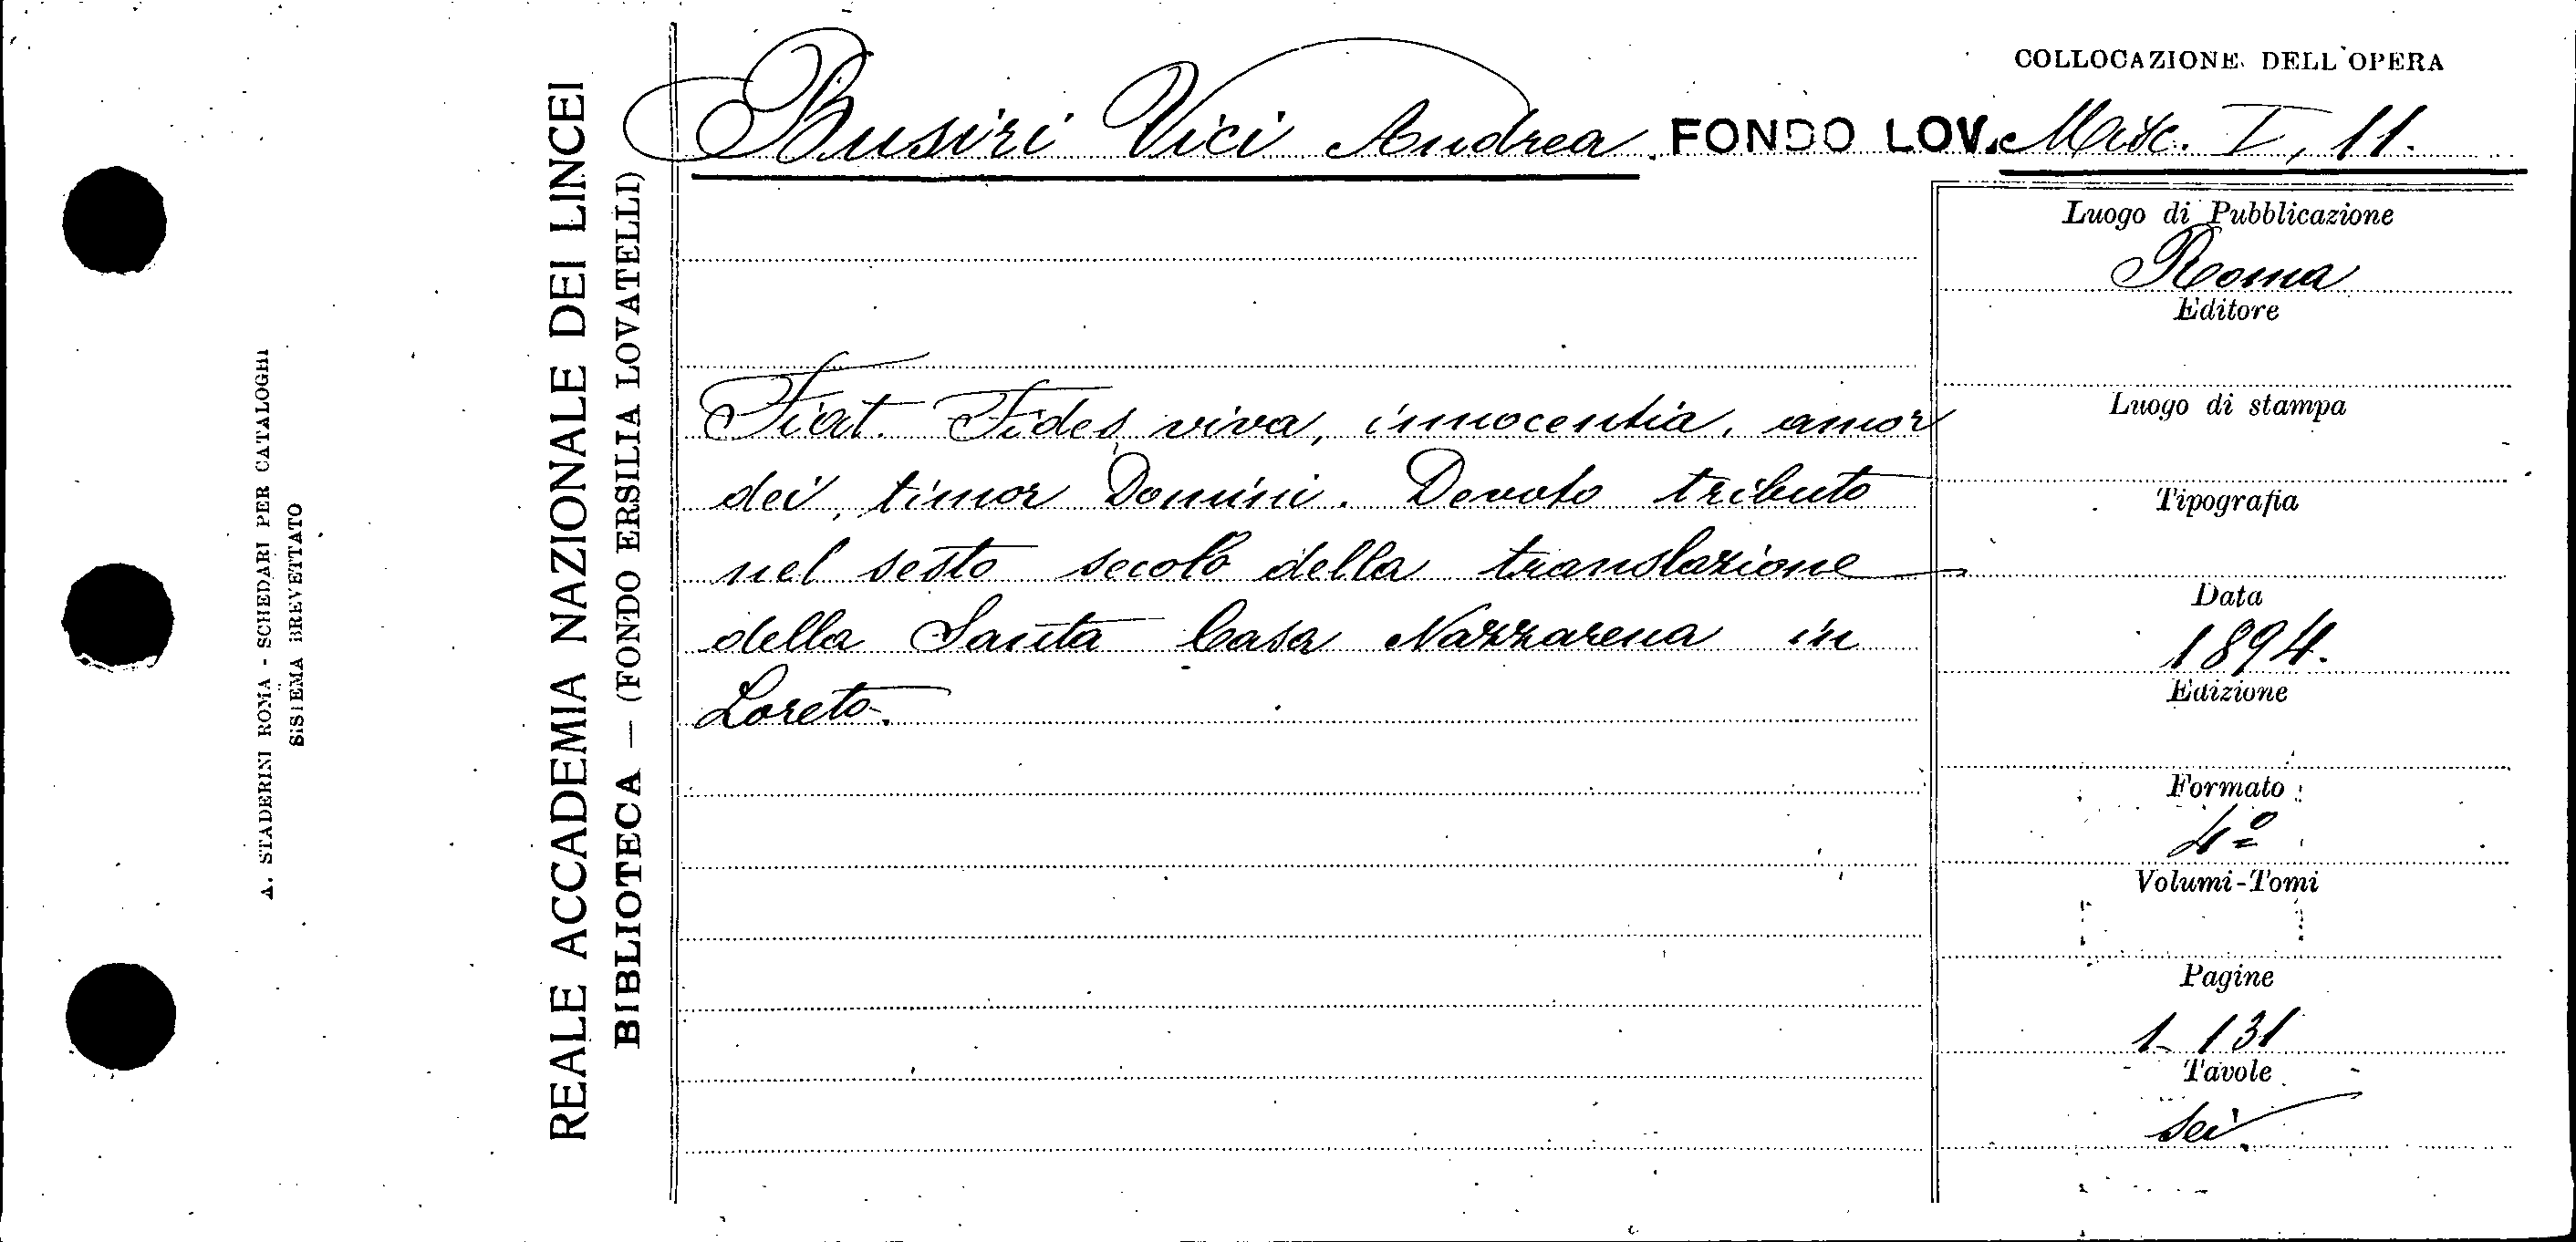 A. STADERINI ROMA - SCHEDARI PER CATALOGHI
SISTEMA BREVETTATO
REALE ACCADEMIA NAZIONALE DEI LINCEI
BIBLIOTECA — (FONDO ERSILIA LOVATELLI)
COLLOCAZIONE DELL'OPERA
Busiri Vici Andrea FONDO LOV. Misc. I, 11.
Fiat. Fides viva, innocentia, amor
dei, timor Domini. Devoto tributo
nel sesto secolo della translazione
della Santa Casa Nazzarena in
Loreto.
Luogo di Pubblicazione
Roma
Editore
Luogo di stampa
Tipografia
Data
1894.
Edizione
Formato
4º
Volumi-Tomi
Pagine
1-131
Tavole
sei